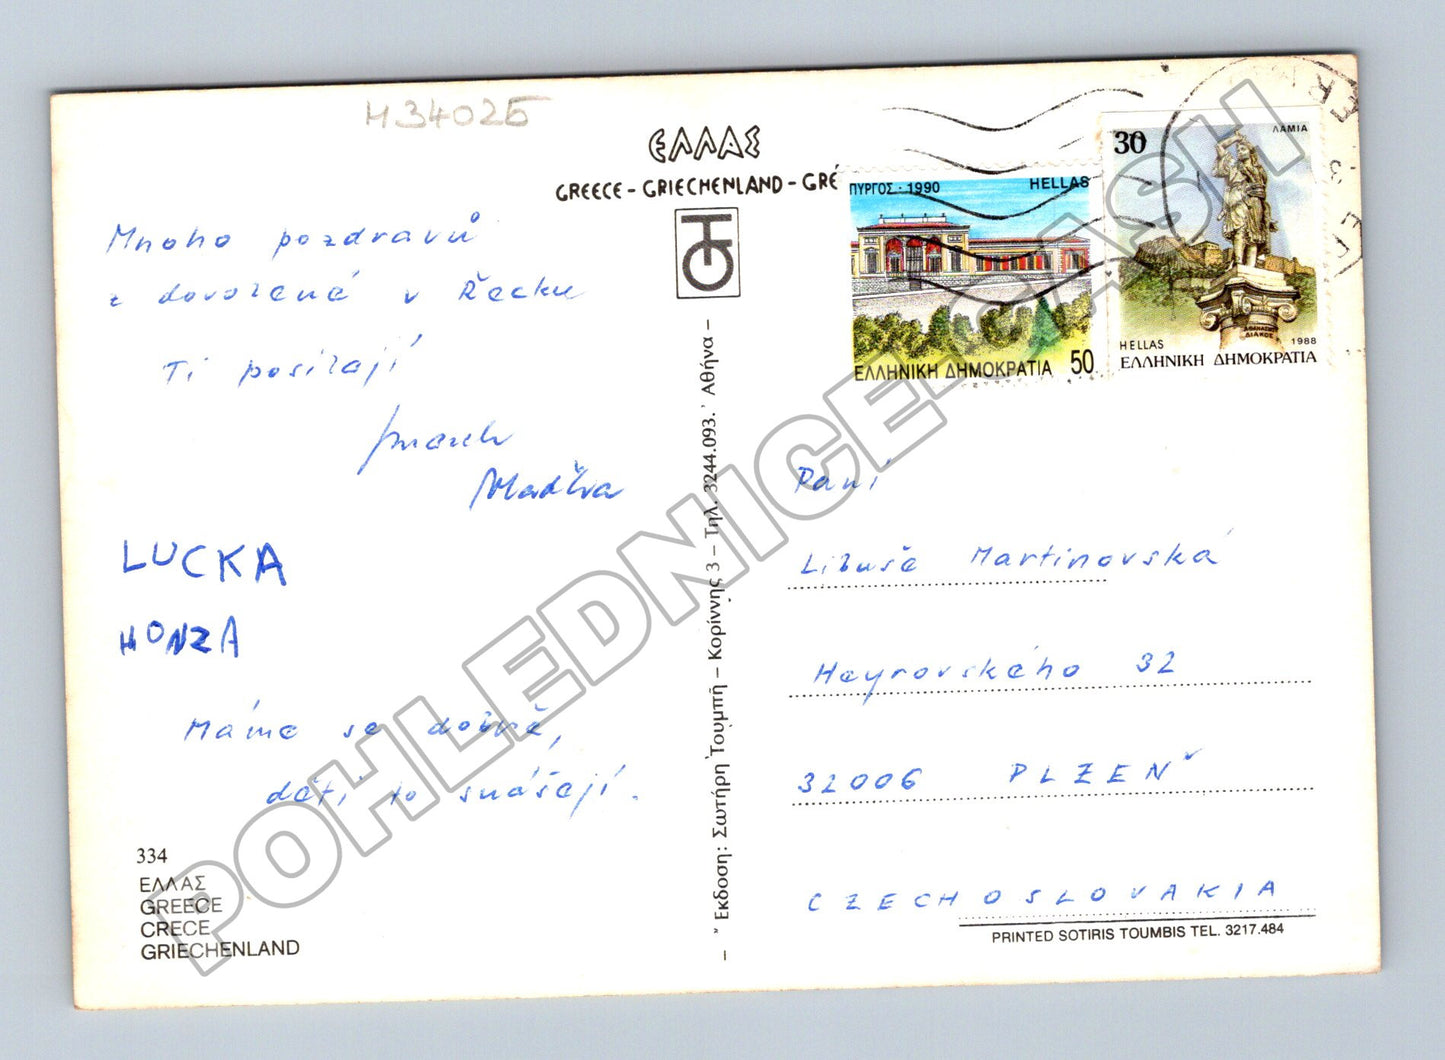 H34025
ΕΛΛΑΣ
GREECE - GRIECHENLAND - GRÉ
Mnoho pozdravů
z dovolené v Řecku
Ti posílají
LUCKA
HONZA
Máme se dobře,
děti to snášejí.
334
ΕΛΛΑΣ
GREECE
CRECE
GRIECHENLAND
" Εκδοση: Σωτήρη Τουμπῆ – Κορίννης 3 – Τηλ. 3244.093. ' Αθήνα –
ΠΥΡΓΟΣ · 1990 HELLAS
ΕΛΛΗΝΙΚΗ ΔΗΜΟΚΡΑΤΙΑ 50
30 ΛΑΜΙΑ
ΑΘΑΝΑΣΙΟΣ
ΔΙΑΚΟΣ
HELLAS 1988
ΕΛΛΗΝΙΚΗ ΔΗΜΟΚΡΑΤΙΑ
Paní
Libuše Martinovská
Heyrovského 32
32006 PLZEŇ
CZECHOSLOVAKIA
PRINTED SOTIRIS TOUMBIS TEL. 3217.484
POHLEDNICE.CASH